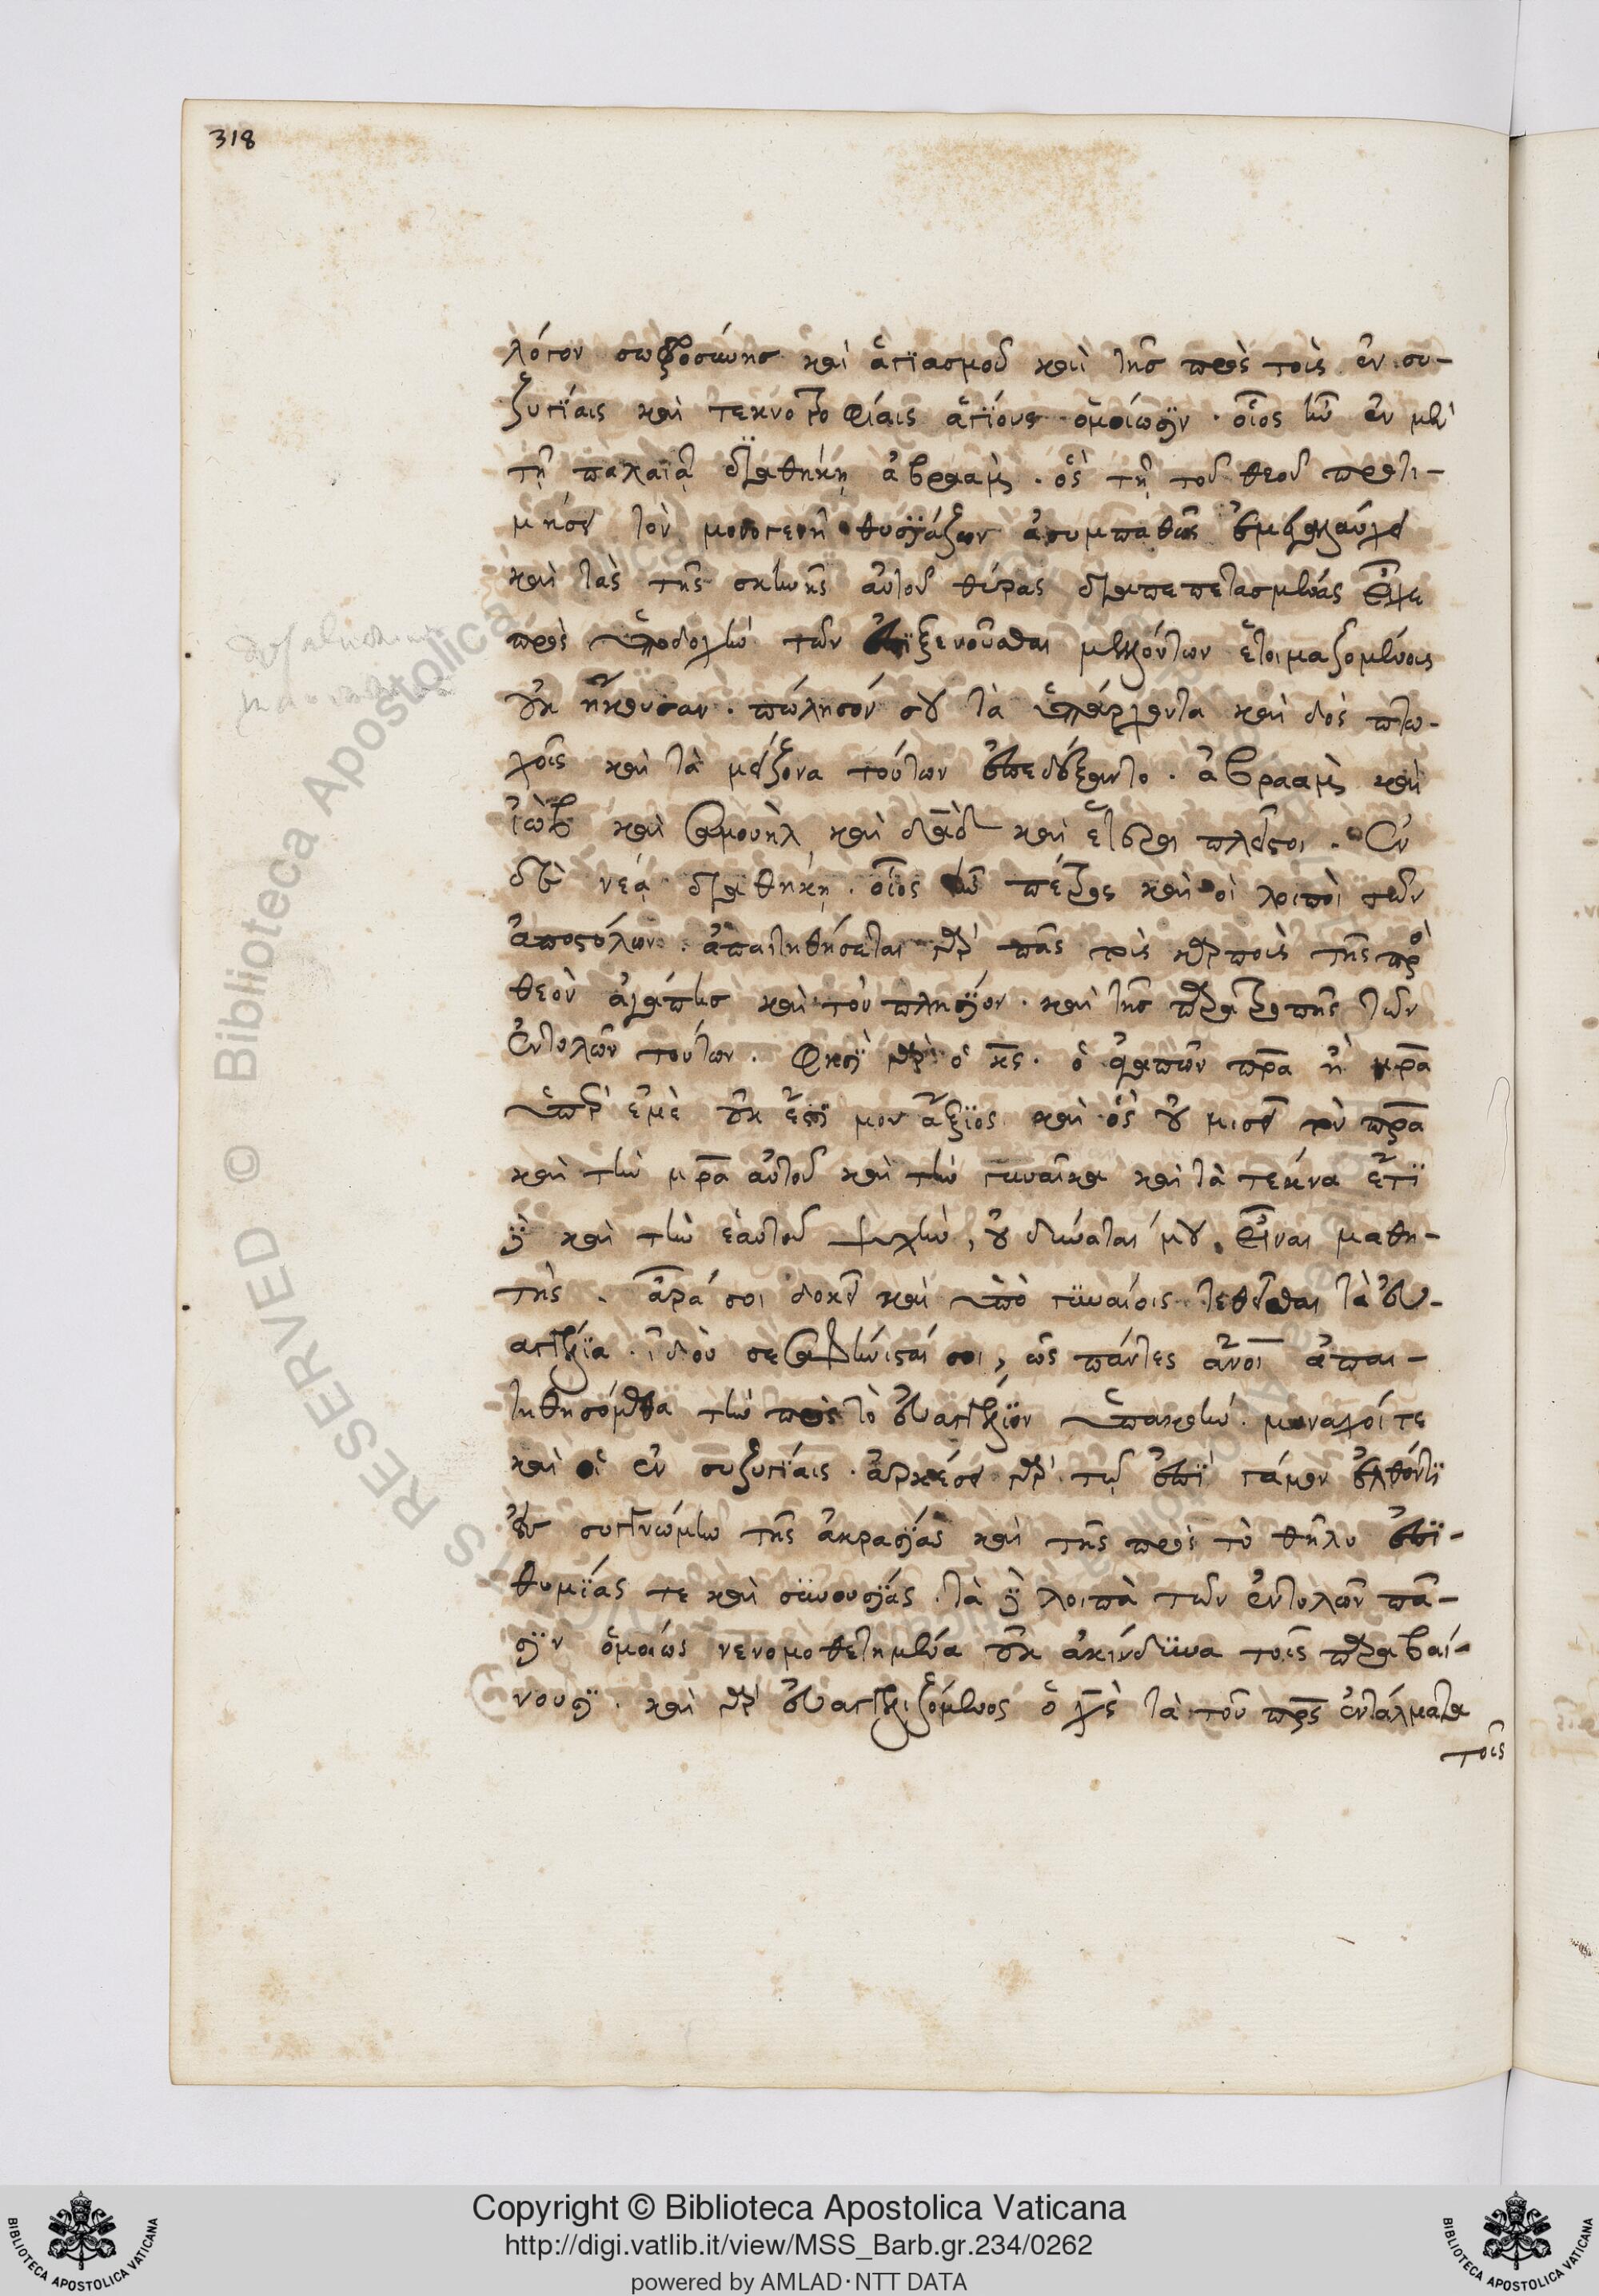 318
λόγον σωφροσύνης καὶ ἁγϊασμοῦ καὶ τῆς πρὸς τοὺς ἐν συ-
ζυγίαις καὶ τεκνοτροφίαις ἁγίους ὁμοιώσϊν. οἷος ἦν ἐν μὲν
τῇ παλαιᾷ διαθήκῃ ἀβραάμ. ὃς τῇ τοῦ θεοῦ προτι-
μήσει τὸν μονογενῆ θυσϊάζων ἀσυμπαθῶς
καὶ τὰς τῆς σκηνῆς αὐτοῦ θύρας διαπεπετασμένας εἶχε
πρὸς ὑποδοχὴν τῶν ἐπϊξενοῦσθαι μελλόντων ἑτοιμαζομένοις
οὐκ ἤκουσαν. πώλησόν σου τὰ ὑπάρχοντα καὶ δὸς πτω-
χοῖς καὶ τὰ μείζονα τούτων ἐπεδείξαντο. ἀβραὰμ καὶ
ἰὼβ καὶ σαμουὴλ καὶ δᾱδ καὶ ἕτεροι πλεῖστοι. ἐν
δὲ νέᾳ διαθήκῃ. οἷος ἦν πέτρος καὶ οἱ λοιποὶ τῶν
ἀποστόλων. ἀπαιτηθήσεται γὰρ πᾶς τοὺς καρποὺς τῆς πρὸ
θεὸν ἀγάπης καὶ τὸν πλησϊόν. καὶ τῆς παρατροπῆς τῶν
ἐντολῶν τούτων. φησϊ γὰρ ὁ κ̄ς. ὁ φιλῶν π̄ρα ἢ μ̄ρα
ὑπὲρ ἐμὲ οὐκ ἔστϊ μου ἄξϊος καὶ ὃς οὐ μισεῖ τὸν π̄ρα
καὶ τὴν μ̄ρα αὐτοῦ καὶ τὴν γυναῖκα καὶ τὰ τέκνα ἔτϊ
δὲ καὶ τὴν ἑαυτοῦ ψυχήν, οὐ δύναταί μου εἶναι μαθη-
τής. ἆρά σοι δοκεῖ καὶ ὑπὸ γυναίοις τεθεῖσθαι τὰ εὐ-
αγγέλϊα. ἰδοὺ σεσαφήνισταί σοι, ὡς πάντες ἄν̄οι ἀπαι-
τηθησόμεθα τὴν πρὸς τὸ εὐαγγέλϊον ὑπακοήν. μοναχοί τε
καὶ οἱ ἐν συζυγίαις. ἀρκέσει γὰρ τῷ ἐπϊ γάμον ἐλθόντϊ
ἡ συγγνώμη τῆς ἀκρασϊας καὶ τῆς πρὸς τὸ θῆλυ ἐπϊ-
θυμϊας τε καὶ συνουσϊας. τὰ δὲ λοιπὰ τῶν ἐντολῶν πᾶ-
σϊν ὁμοίως νενομοθετημένα οὐκ ἀκίνδυνα τοῖς παραβαί-
νουσϊ. καὶ γὰρ εὐαγγελιζόμενος ὁ χ̄ς τὰ τοῦ π̄ρς ἐντάλματα
τοῖς
RESERVED © Biblioteca Apostolica
Copyright © Biblioteca Apostolica Vaticana
http://digi.vatlib.it/view/MSS_Barb.gr.234/0262
powered by AMLAD·NTT DATA
BIBLIOTECA APOSTOLICA VATICANA
BIBLIOTECA APOSTOLICA VATICANA